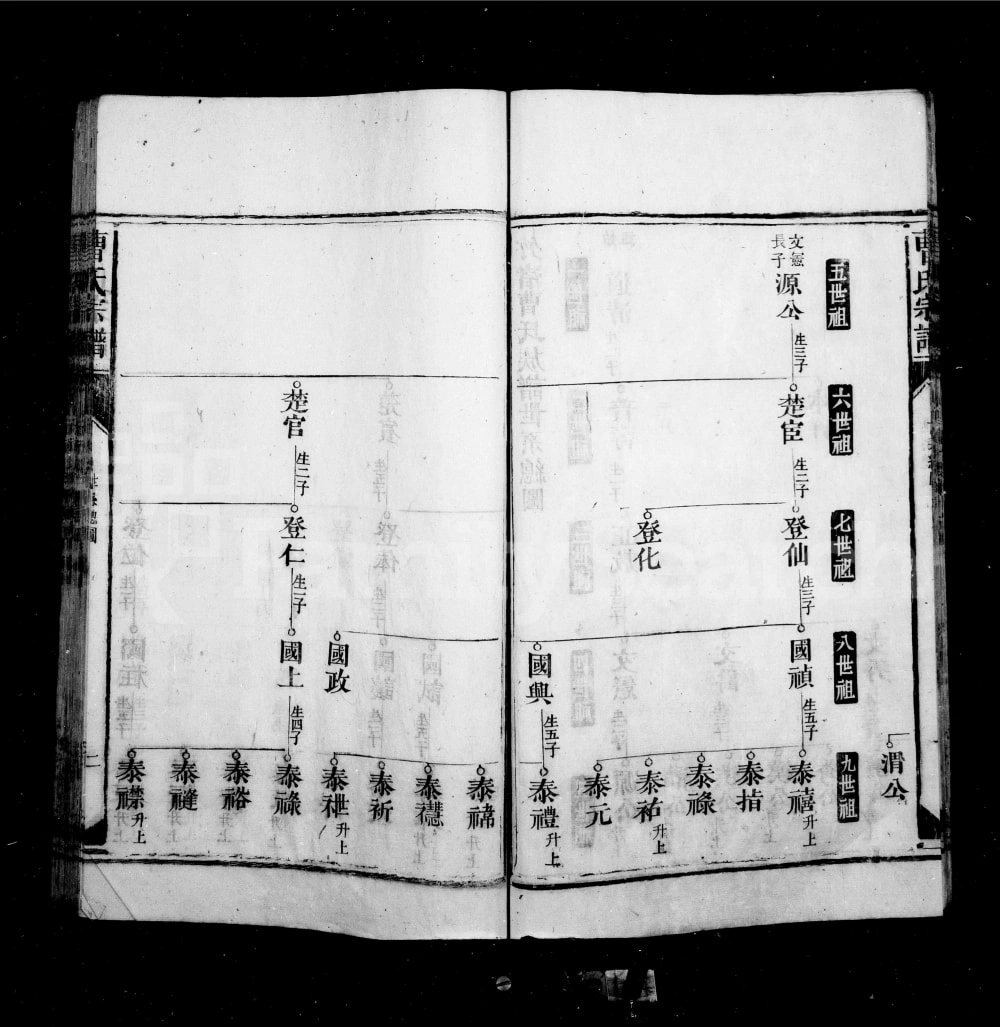 曹氏宗譜
五世祖
六世祖
七世祖
八世祖
九世祖
渭公
文憲長子
源公
生三子
楚宦
生二子
登仙
生三子
國禎
生五子
泰禧 升上
泰指
泰祿
泰祐 升上
泰元
登化
國興
生五子
泰禮 升上
泰禘
泰禮
泰祈
泰禩 升上
國政
楚官
生二子
登仁
生一子
國上
生四子
泰祿
泰裕
泰縫
泰襟 升上
曹氏宗譜
世系總圖
二